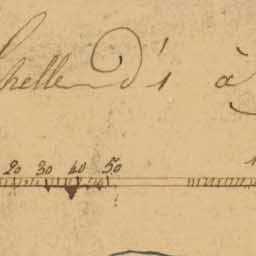 chelle d'1 à
20 30 40 50 1